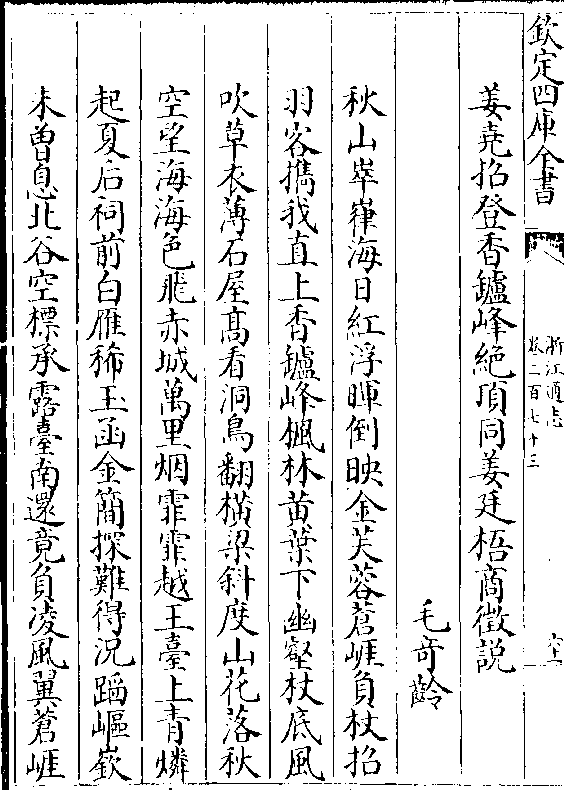 欽定四庫全書
浙江通志
卷二百七十三
六十一
姜堯招登香鑪峰絶頂同姜廷梧商徵說
毛奇齡
秋山崒嵂海日紅浮暉倒映金芙蓉蒼崕負杖招
羽客攜我直上香鑪峰楓林黃葉下幽壑杖底風
吹草衣薄石屋髙看洞鳥翻横梁斜度山花落秋
空望海海色飛赤城萬里烟霏霏越王臺上青燐
起夏后祠前白雁稀玉函金簡探難得況蹈嶇嶔
未曽息北谷空標承露臺南還竟負凌風翼蒼崕